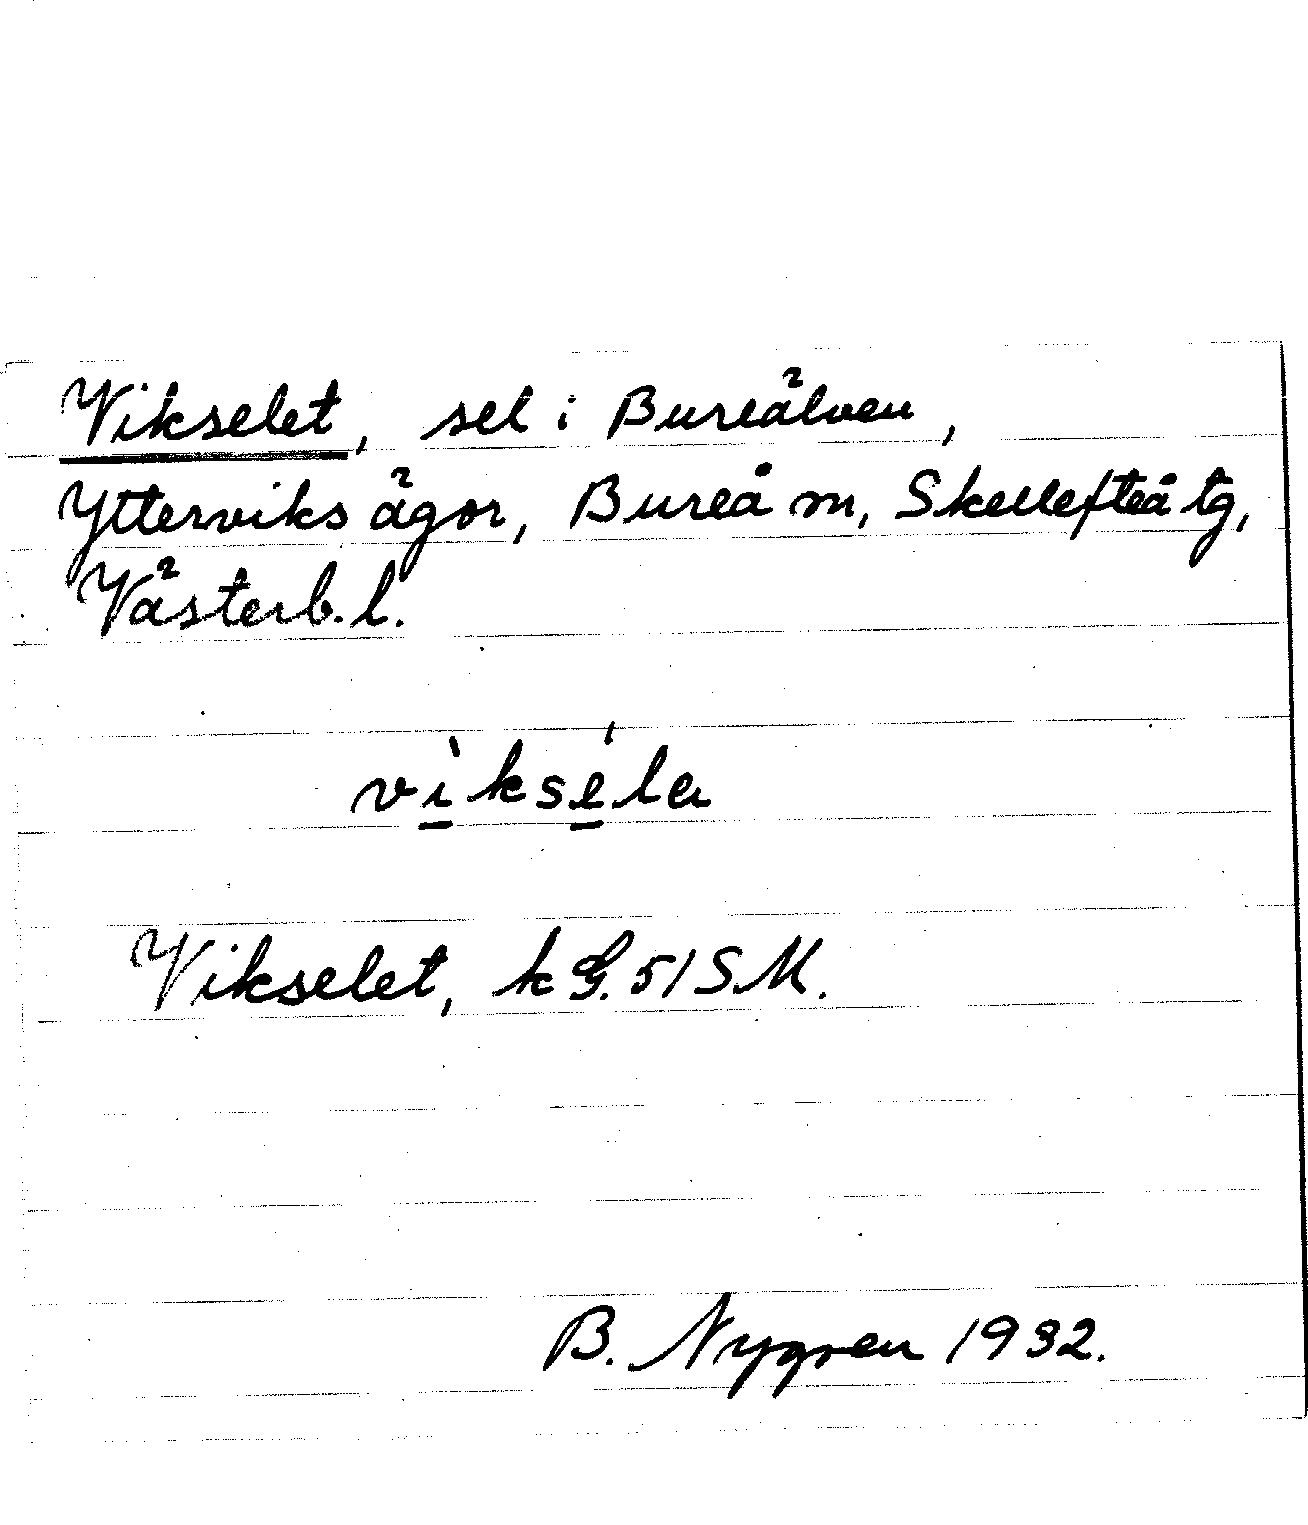 Vikselet, sel i Bureälven,
Ytterviks ägor, Bureå m, Skellefteå tg,
Västerb. l.
vìkséla
Vikselet, k G. 51 SM.
B. Nygren 1932.